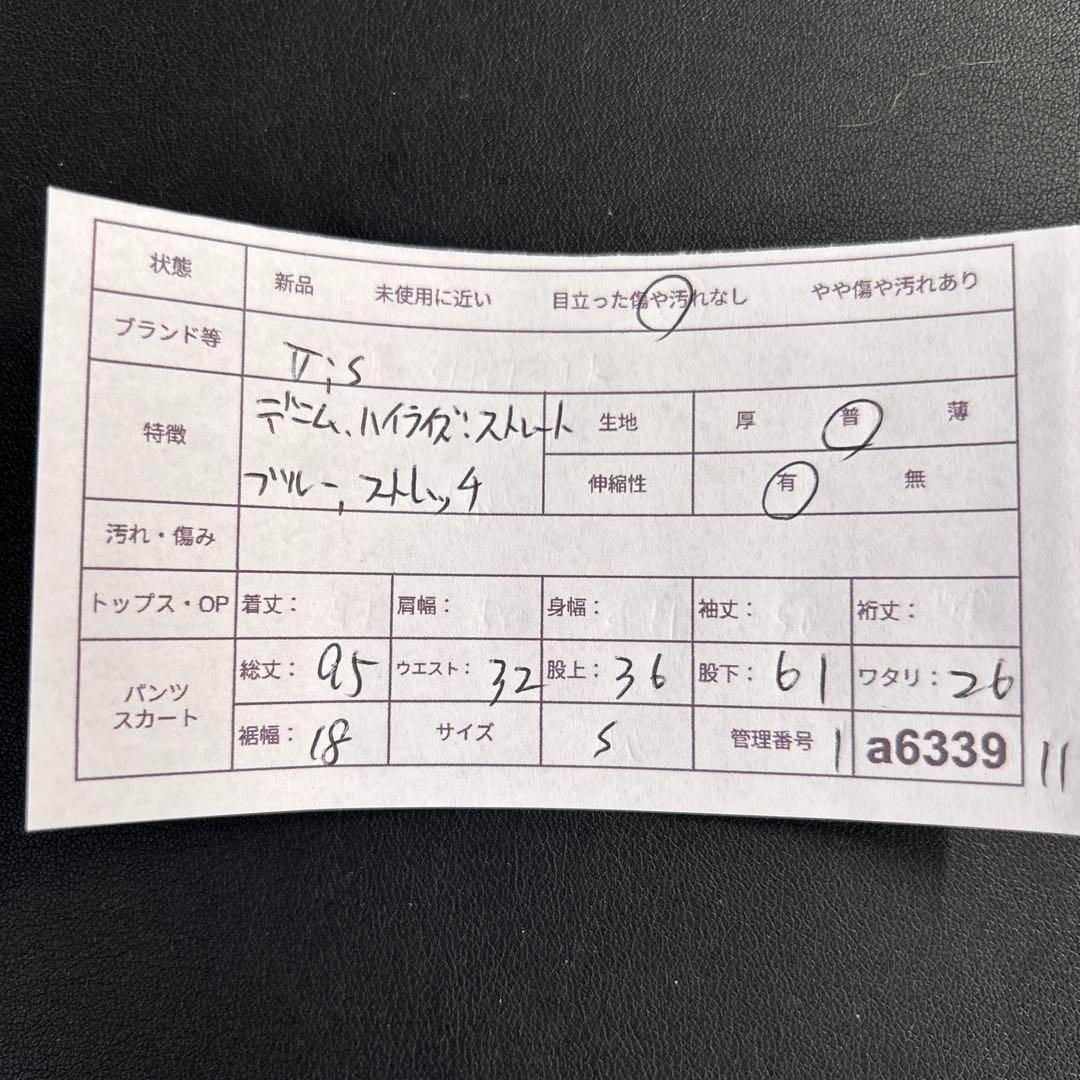 状態 新品 未使用に近い 目立った傷や汚れなし やや傷や汚れあり
ブランド等 Vis
特徴 デニム、ハイライズ:ストレート 生地 厚 普 薄
ブルー、ストレッチ 伸縮性 有 無
汚れ・傷み
トップス・OP 着丈: 肩幅: 身幅: 袖丈: 裄丈:
パンツ スカート 総丈: 95 ウエスト: 32 股上: 36 股下: 61 ワタリ: 26
裾幅: 18 サイズ S 管理番号 1 a6339 11